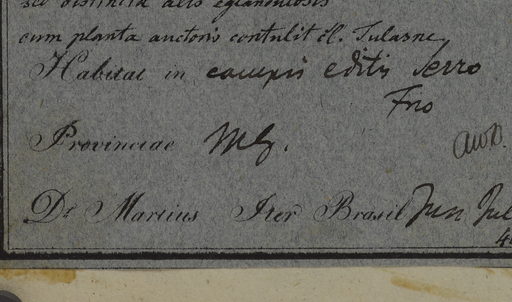 sed distincta alis eglandulosis
cum planta auctoris contulit cl. Tulasne
Habitat in campis editis Serro
Frio
Provinciae MG.
Dr. Martius Iter Brasil Jun Jul
4